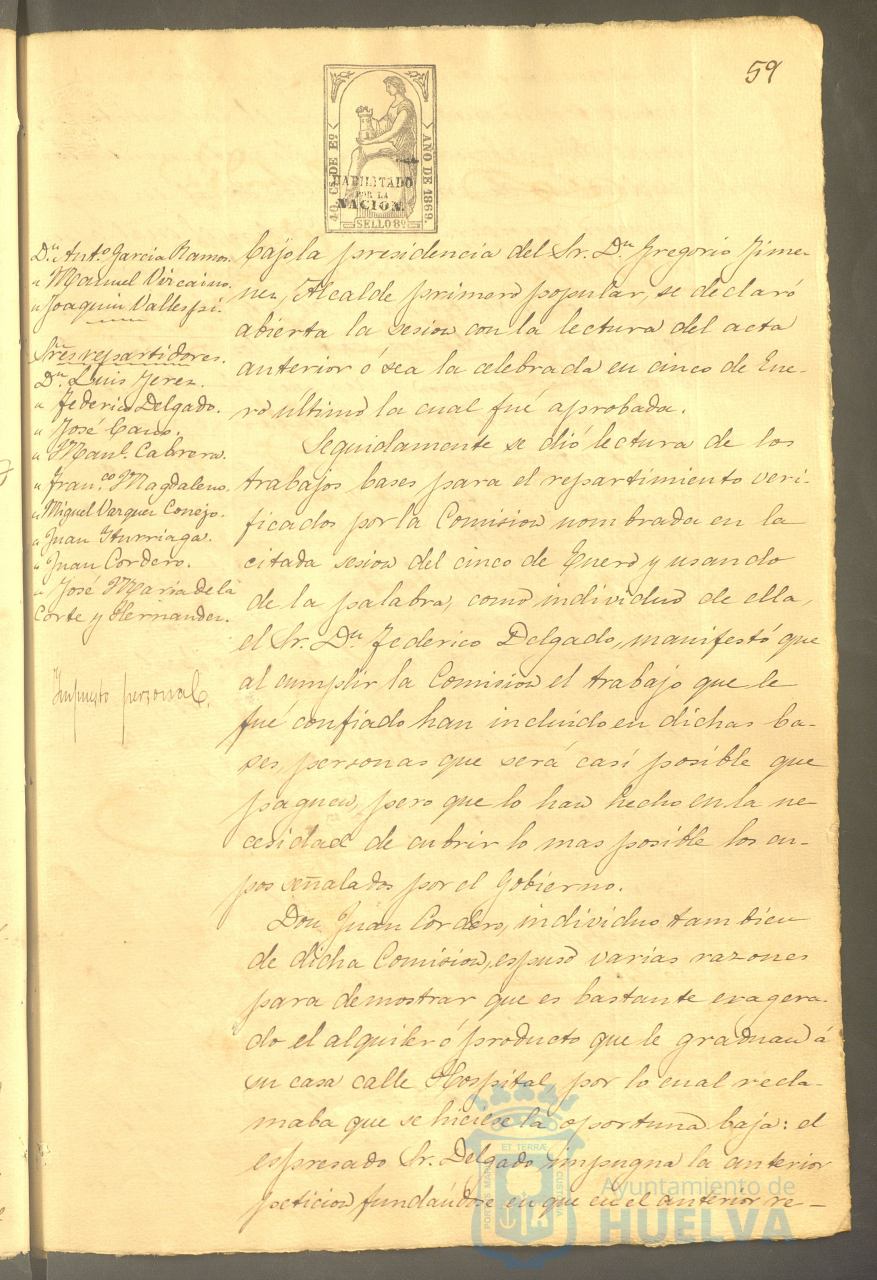 59
40 Cs. DE Eº
AÑO DE 1869.
HABILITADO
POR LA
NACION.
SELLO 8º
D.n Ant.o Garcia Ramos.
" Manuel Vizcaino.
" Joaquin Vallespi.
Sres repartidores.
D.n Luis Jerez.
" Federico Delgado.
" José Cano.
" Man.l Cabrera.
" Fran.co Magdaleno.
" Miguel Vazquez Conejo.
" Juan Iturriaga.
" Juan Cordero.
" José Maria de la
Corte y Hernandez.
Impuesto personal.
bajo la presidencia del Sr. D.n Gregorio Jime-
nez, Alcalde primero popular, se declaró
abierta la sesion con la lectura del acta
anterior ó sea la celebrada en cinco de Ene-
ro último la cual fué aprobada.
Seguidamente se dió lectura de los
trabajos bases para el repartimiento veri-
ficados por la Comision nombrada en la
citada sesion del cinco de Enero y usando
de la palabra, como individuo de ella,
el Sr. D.n Federico Delgado, manifestó que
al cumplir la Comision el trabajo que le
fué confiado han incluido en dichas ba-
ses, personas que será casi posible que
paguen, pero que lo han hecho en la ne-
cesidad de cubrir lo mas posible los cu-
pos señalados por el Gobierno.
Don Juan Cordero, individuo tambien
de dicha Comision, espuso varias razones
para demostrar que es bastante exagera-
do el alquiler ó producto que le graduan á
su casa calle Hospital, por lo cual recla-
maba que se hiciese la oportuna baja: el
espresado Sr. Delgado impugna la anterior
peticion fundandose en que en el anterior re-
ET TERRÆ
PORTUS MARIS
CUSTODIA
Ayuntamiento de
HUELVA